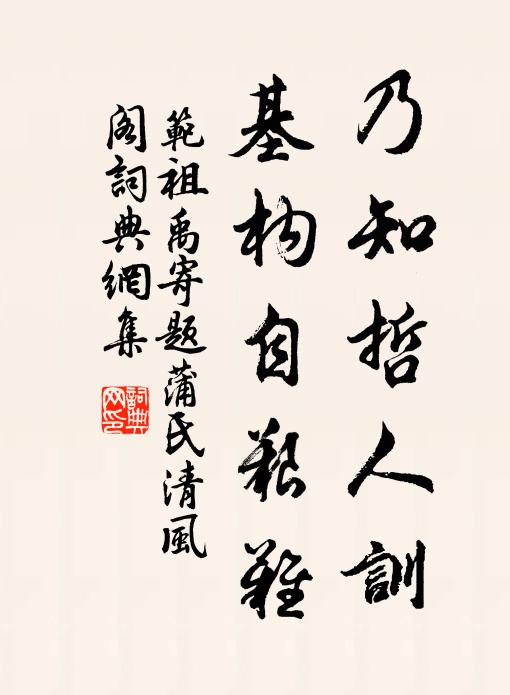 乃知哲人訓
基构自艱難
範祖禹寄题蒲氏清風
阁詞典網集
詞典网印